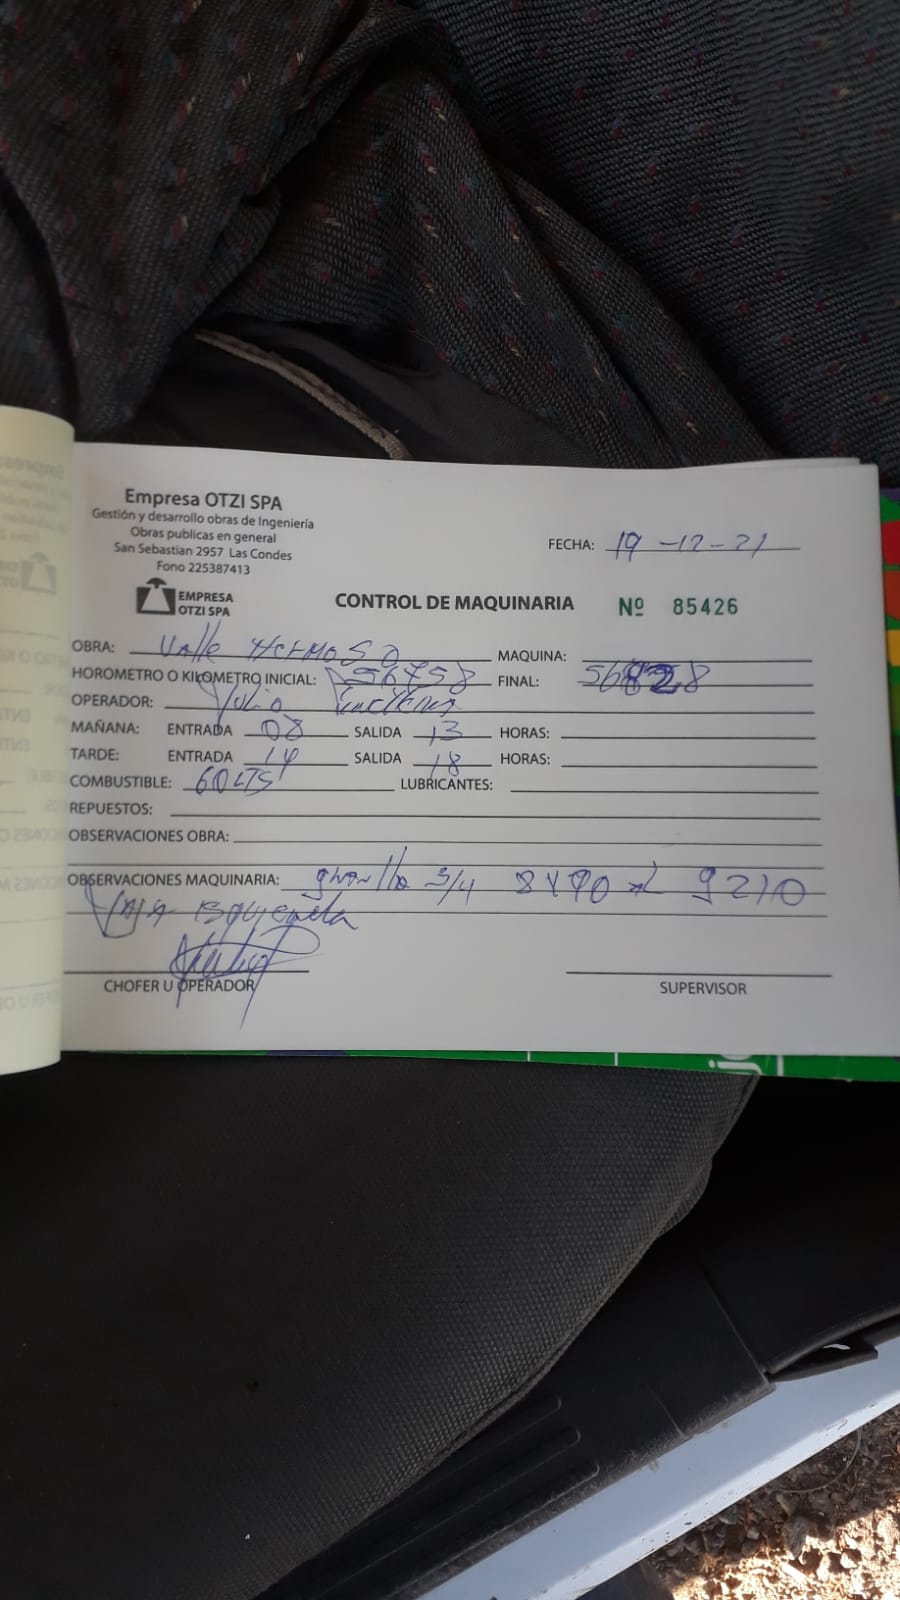 Empresa OTZI SPA
Gestión y desarrollo obras de Ingeniería
Obras publicas en general
San Sebastian 2957 Las Condes
Fono 225387413
EMPRESA
OTZI SPA
FECHA: 19-12-21
CONTROL DE MAQUINARIA Nº 85426
OBRA: Valle HERMOSO MAQUINA:
HOROMETRO O KILOMETRO INICIAL: 56758 FINAL: 56828
OPERADOR: Julio
MAÑANA: ENTRADA 08 SALIDA 13 HORAS:
TARDE: ENTRADA 14 SALIDA 18 HORAS:
COMBUSTIBLE: 60 LTS LUBRICANTES:
REPUESTOS:
OBSERVACIONES OBRA:
OBSERVACIONES MAQUINARIA: 3/4 al 9210
CHOFER U OPERADOR SUPERVISOR